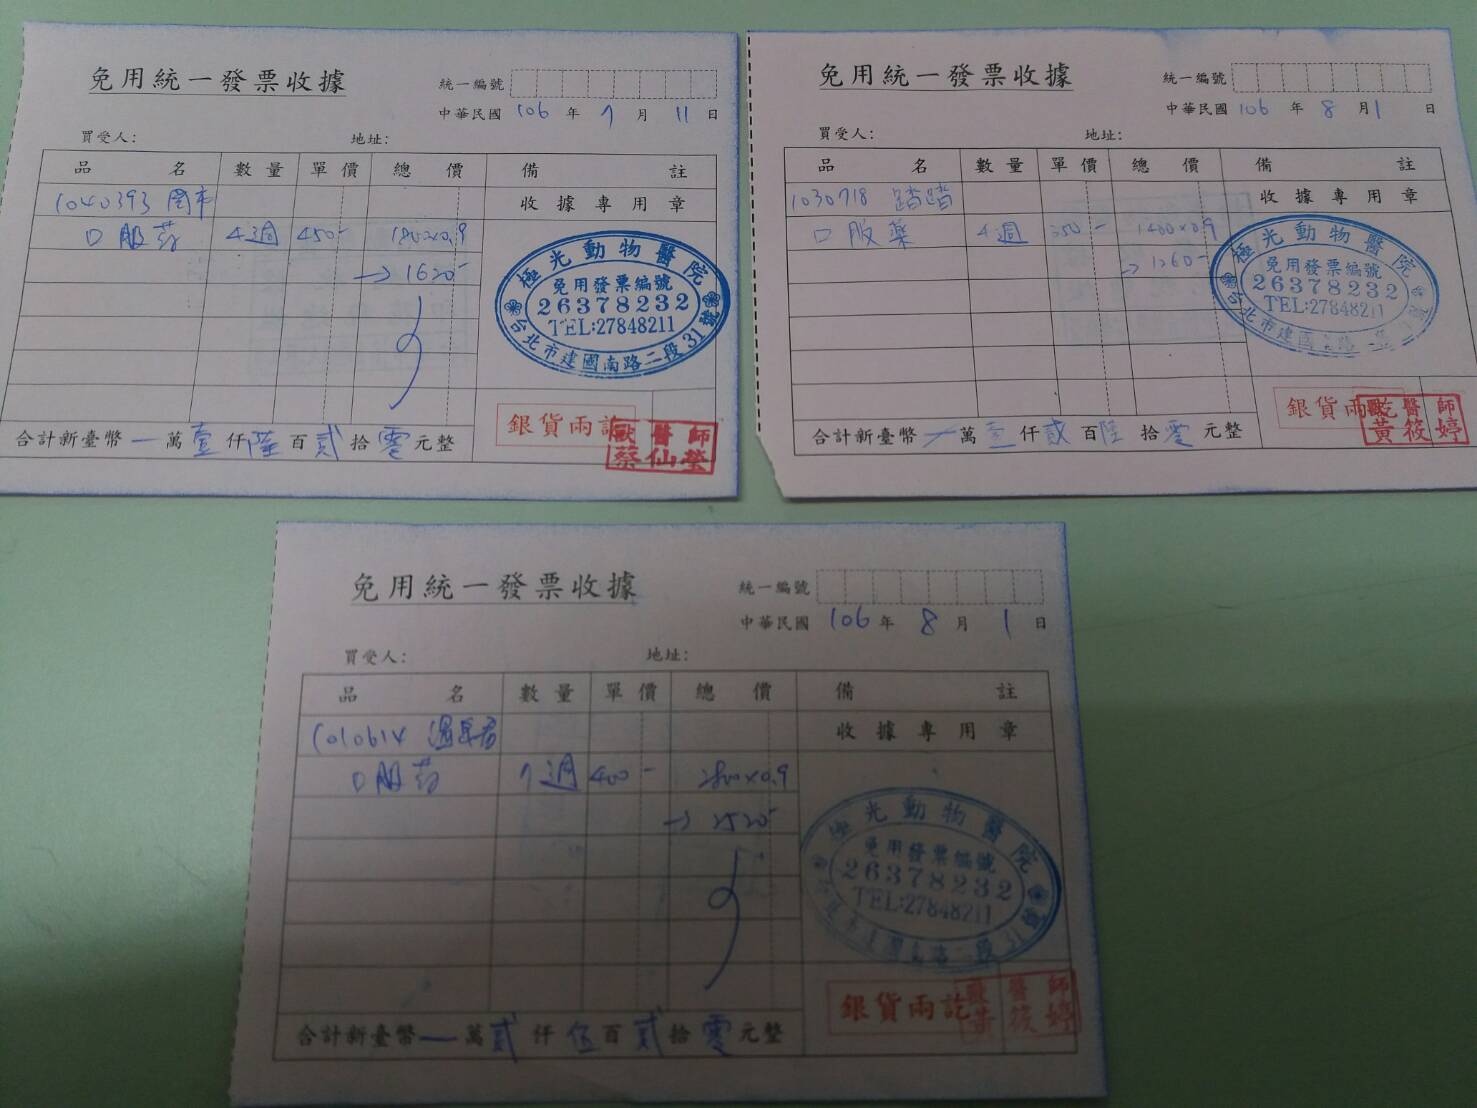 免用統一發票收據
統一編號
中華民國 106 年 7 月 11 日
買受人: 地址:
品名 數量 單價 總價 備註
1040393 收據專用章
口服药 4週 450- 1800x0.9
→1620-
極光動物醫院
免用發票編號
26378232
TEL:27848211
台北市建國南路二段31號
銀貨兩訖
獸醫師
蔡仙瑩
合計新臺幣 一 萬 壹 仟 陸 百 貳 拾 零 元整
免用統一發票收據
統一編號
中華民國 106 年 8 月 1 日
買受人: 地址:
品名 數量 單價 總價 備註
1030718 踏踏 收據專用章
口服藥 4週 350- 1400x0.9
→1260-
極光動物醫院
免用發票編號
26378232
TEL:27848211
台北市建國南路二段
銀貨兩訖
獸醫師
黃筱婷
合計新臺幣 一 萬 壹 仟 貳 百 陸 拾 零 元整
免用統一發票收據
統一編號
中華民國 106 年 8 月 1 日
買受人: 地址:
品名 數量 單價 總價 備註
1010614 收據專用章
口服药 7週 400- 2800x0.9
→2520-
極光動物醫院
免用發票編號
26378232
TEL:27848211
銀貨兩訖
獸醫師
黃筱婷
合計新臺幣 一 萬 貳 仟 伍 百 貳 拾 零 元整